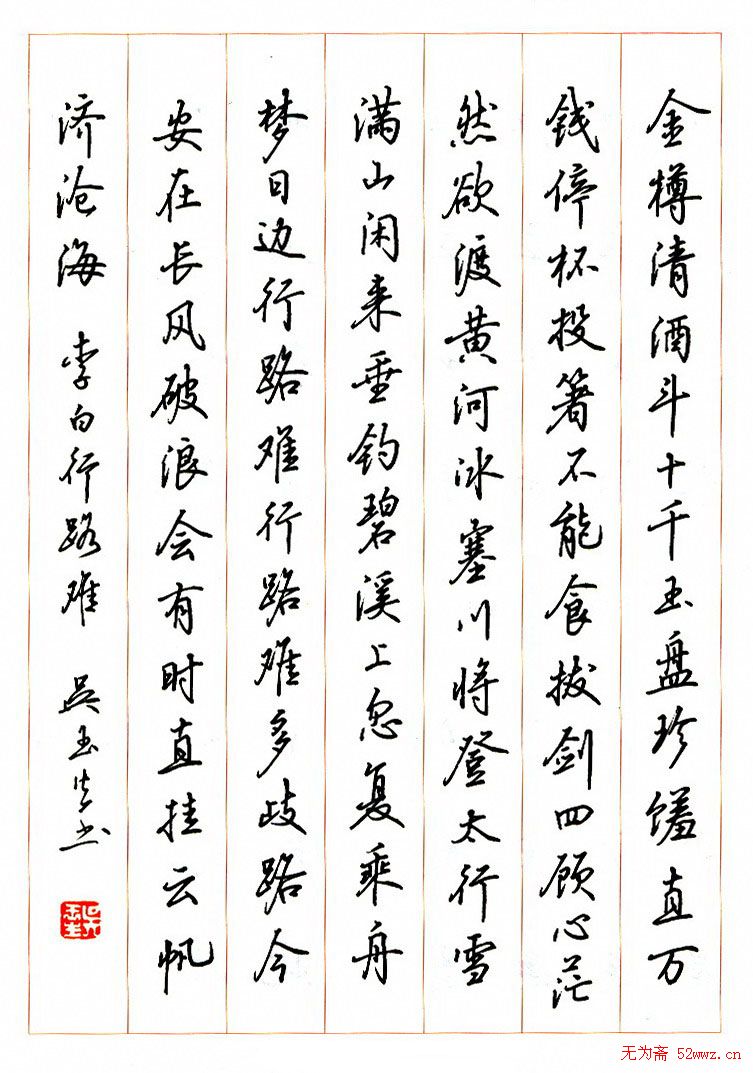 金樽清酒斗十千玉盘珍馐直万
钱停杯投箸不能食拔剑四顾心茫
然欲渡黄河冰塞川将登太行雪
满山闲来垂钓碧溪上忽复乘舟
梦日边行路难行路难多歧路今
安在长风破浪会有时直挂云帆
济沧海 李白行路难 吴玉生书
无为斋 52wwz.cn